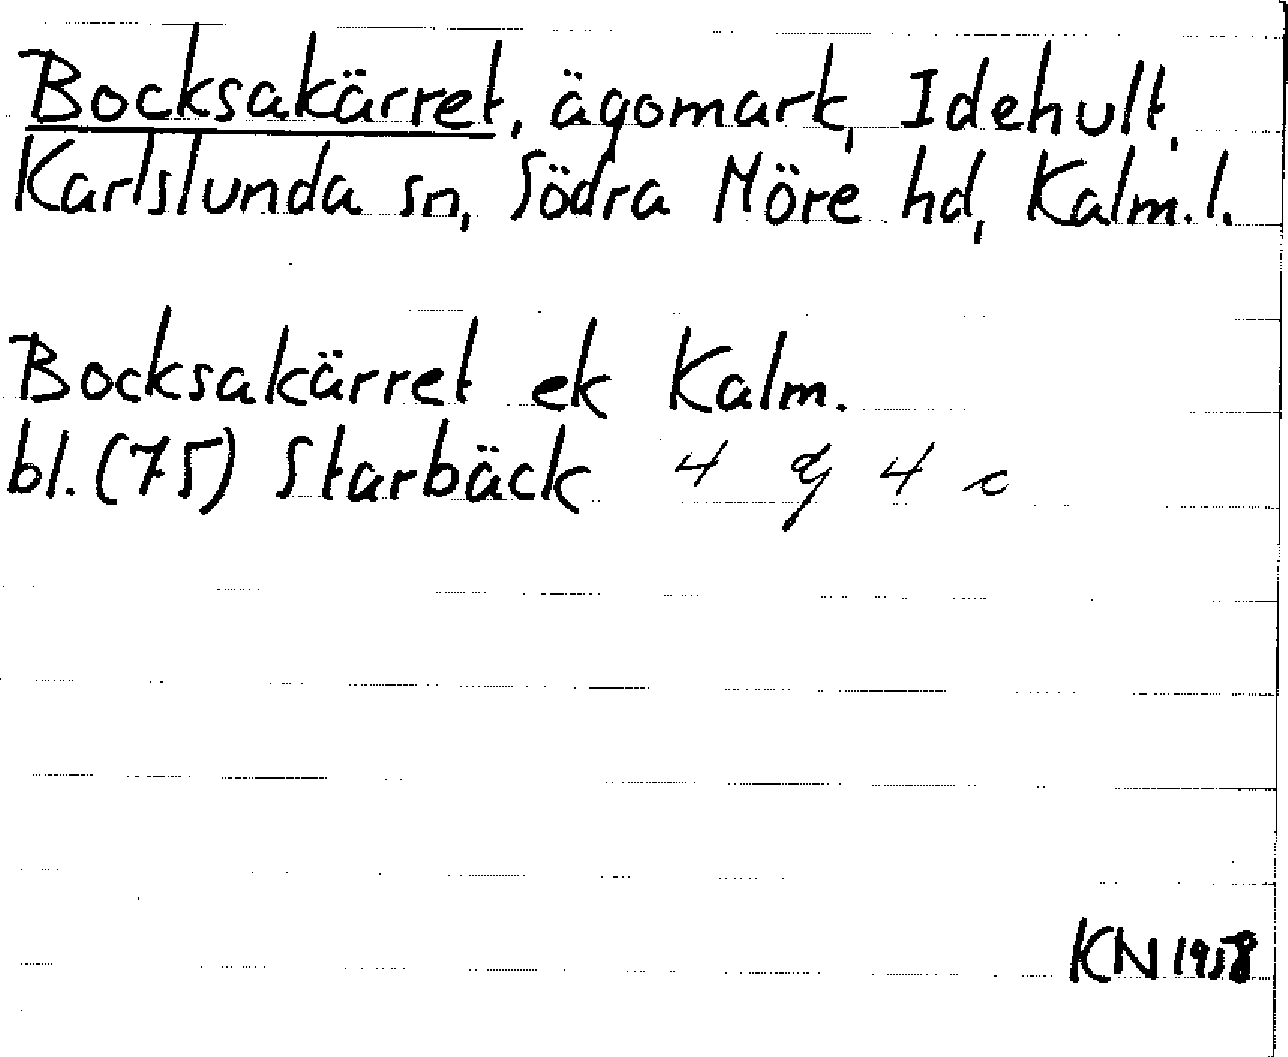 Bocksakärret, ägomark, Idehult,
Karlslunda sn, Södra Möre hd, Kalm. l.
Bocksakärret ek Kalm.
bl. (75) Starbäck 4 g 4 c
KN 1958